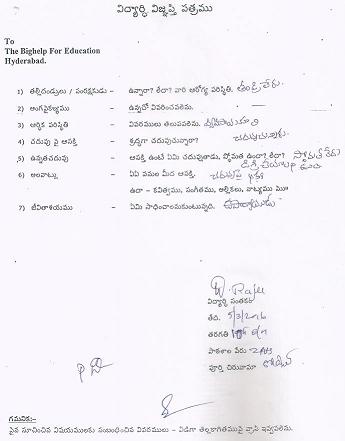 విద్యార్ధి విజ్ఞప్తి పత్రము
To
The Bighelp For Education
Hyderabad.
1) తల్లిదండ్రులు / సంరక్షకుడు - ఉన్నారా? లేరా? వారి ఆరోగ్య పరిస్థితి. తండ్రి లేరు.
2) అంగవైకల్యము - ఉన్నచో వివరించవలెను.
3) ఆర్ధిక పరిస్థితి - వివరములు తెలుపవలెను.
4) చదువు పై ఆసక్తి - శ్రద్ధగా చదువుచున్నారా? చదువుచున్నాడు.
5) ఉన్నతచదువు - ఆసక్తి ఉంటే ఏమి చదువుతాడు, స్తోమత ఉందా? లేదా? స్తోమత లేదు
డిగ్రీ చేయాలని ఉంది
6) అలవాట్లు - ఏఏ పనుల మీద ఆసక్తి. చదువుపై
ఉదా - కవిత్వము, సంగీతము, అల్లికలు, నాట్యము మొ॥
7) జీవితాశయము - ఏమి సాధించాలనుకుంటున్నది. ఉపాధ్యాయుడు
Raju
విద్యార్ధి సంతకం
తేది. 5/3/2016
తరగతి
పాఠశాల పేరు ZPHS
పూర్తి చిరునామా
గమనిక:-
పైన సూచించిన విషయములకు సంబంధించిన వివరములు - విడిగా తెల్లకాగితముపై వ్రాసి ఇవ్వవలెను.